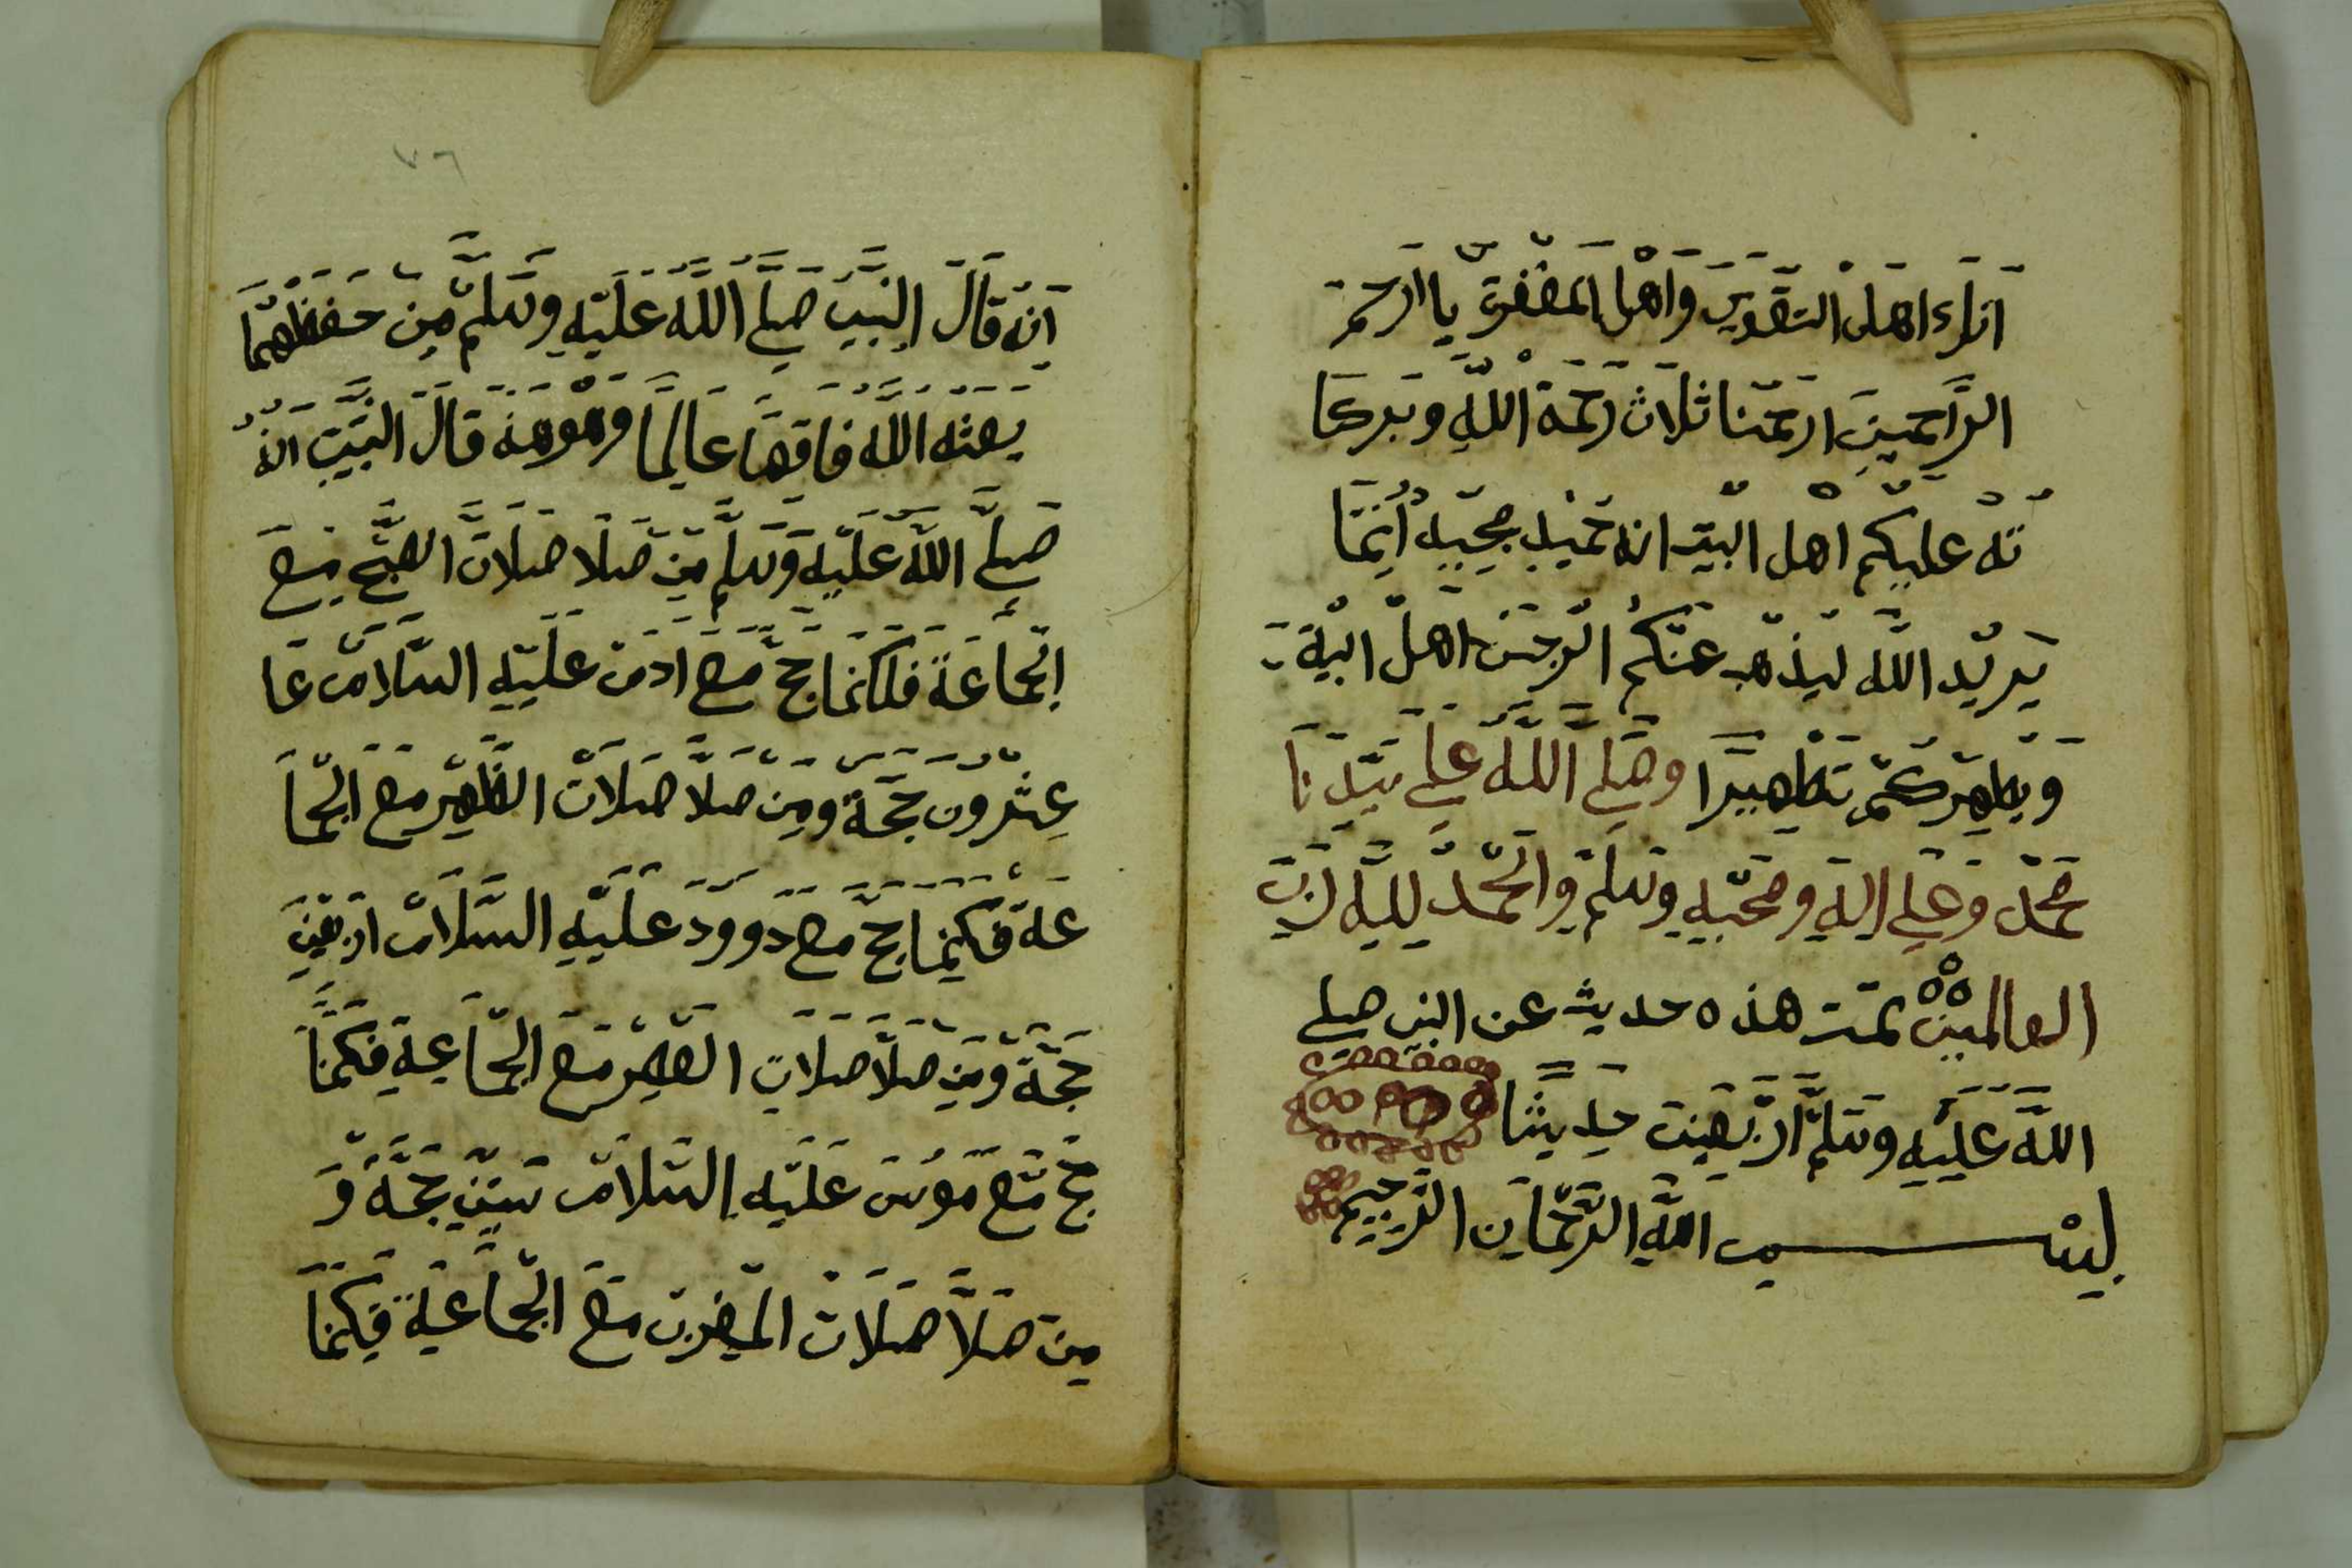 اناء اهل التقوي واهل المغفرة يا ارحم
الراحمين ارحمنا ثلاث رحمة الله وبركا
ته عليكم اهل البيت انه حميد مجيد انما
يريد الله ليذهب عنكم الرجس اهل البية
ويطهركم تطهيرا وصلي الله علي سيدنا
محمد وعلي اله وصحبه وسلم والحمد لله رب
العالمين تمت هذه حديث عن النبي صلي
الله عليه وسلم اربعين حديثا
بسم الله الرحمان الرحيم
٧٦
انه قال النبي صلي الله عليه وسلم من حفظهما
بعثه الله فاقها عالما قال النبي انه
صلي الله عليه وسلم من صلا صلات الصبح مع
الجماعة فلكانما حج مع ادم عليه السلام عا
عشرون حجة ومن صلا صلات الظهر مع الجما
عة فكنما حج مع دوود عليه السلام اربعين
حجة ومن صلا صلات العصر مع الجماعة فكنما
حج مع موسى عليه السلام ستين حجة و
من صلا صلات المغرب مع الجماعة فكنما